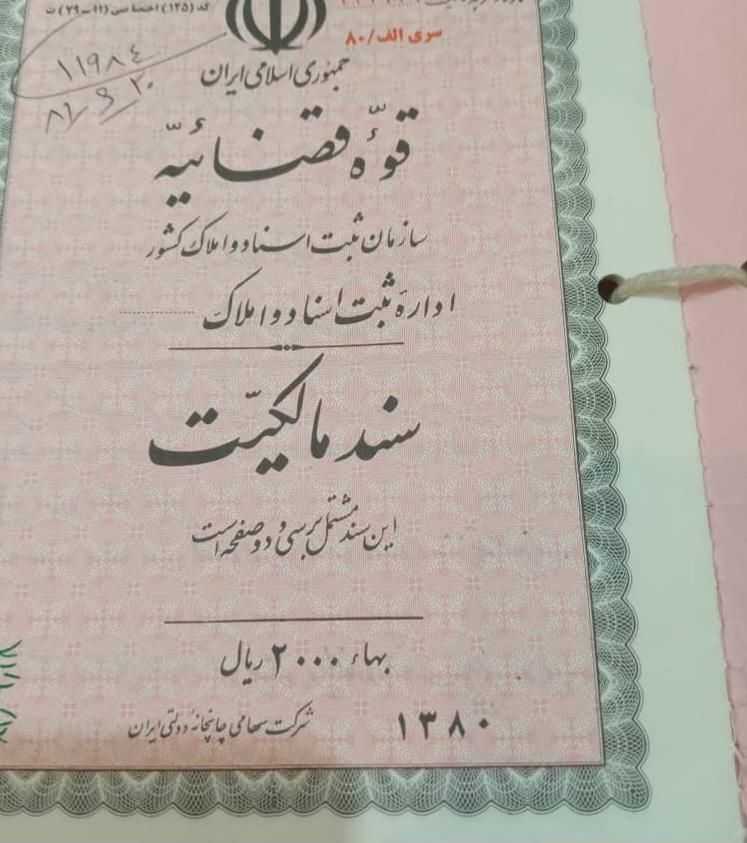 کد (۱۲۵) اختصاصی (۱۱-۲۹) ث
سری الف/۸۰
۱۱۹۸۴
جمهوری اسلامی ایران
قوّهٔ قضائیّه
سازمان ثبت اسناد و املاک کشور
ادارهٔ ثبت اسناد و املاک ..............
سند مالکیّت
این سند مشتمل بر سی و دو صفحه است
بهاء ۲۰۰۰ ریال
۱۳۸۰
شرکت سهامی چاپخانهٔ دولتی ایران